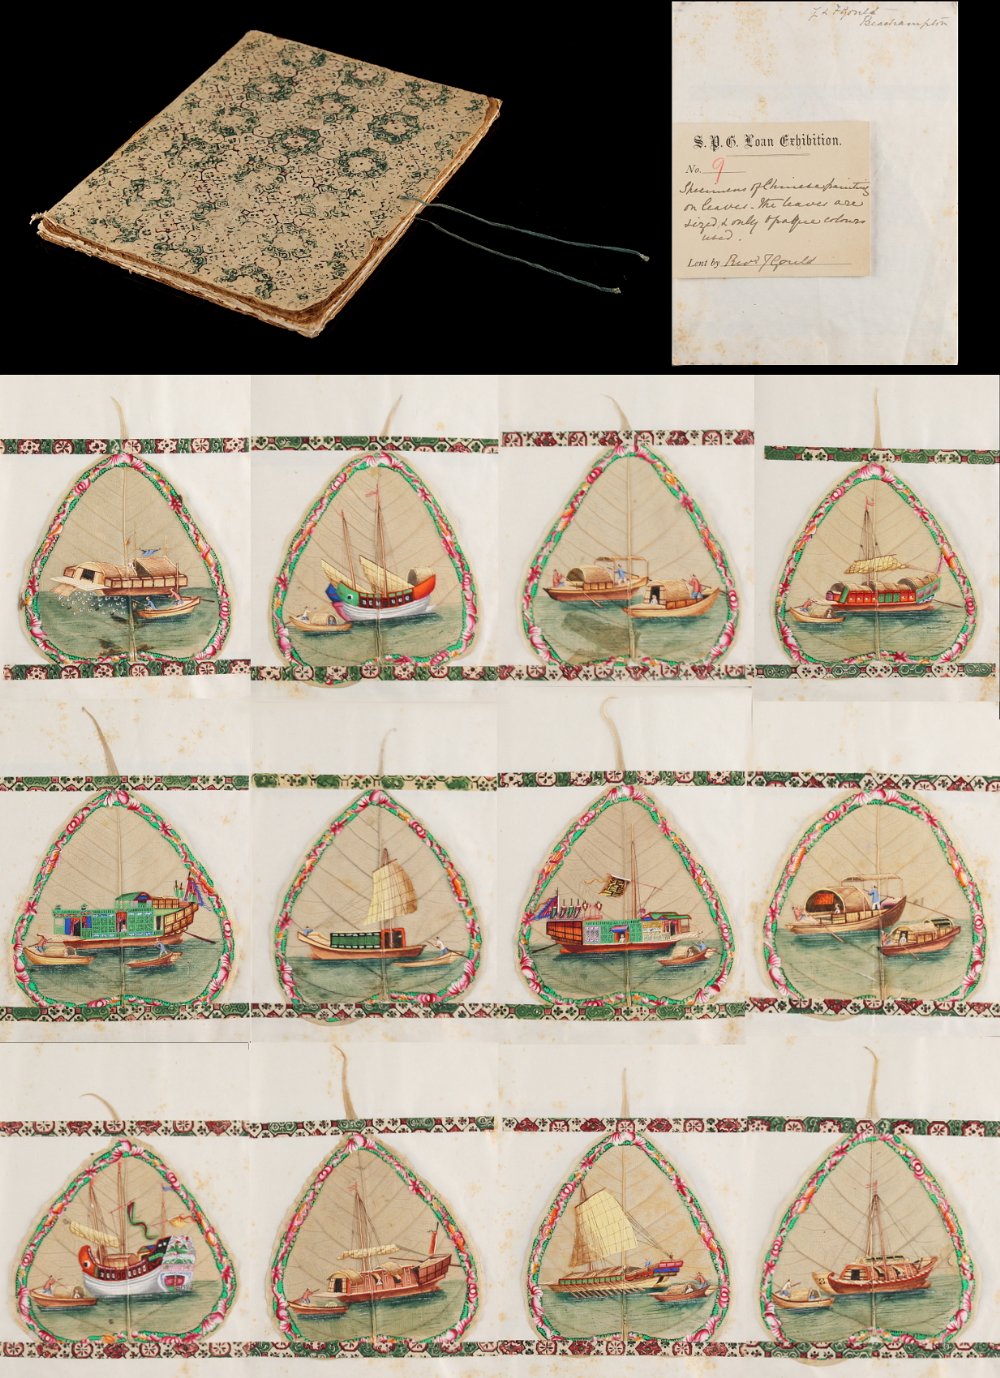 J Gould
Beachampton
S. P. G. Loan Exhibition.
No. 9
Specimens of Chinese painting
on leaves. The leaves are
sized & only opaque colours
used.
Lent by Revd J Gould